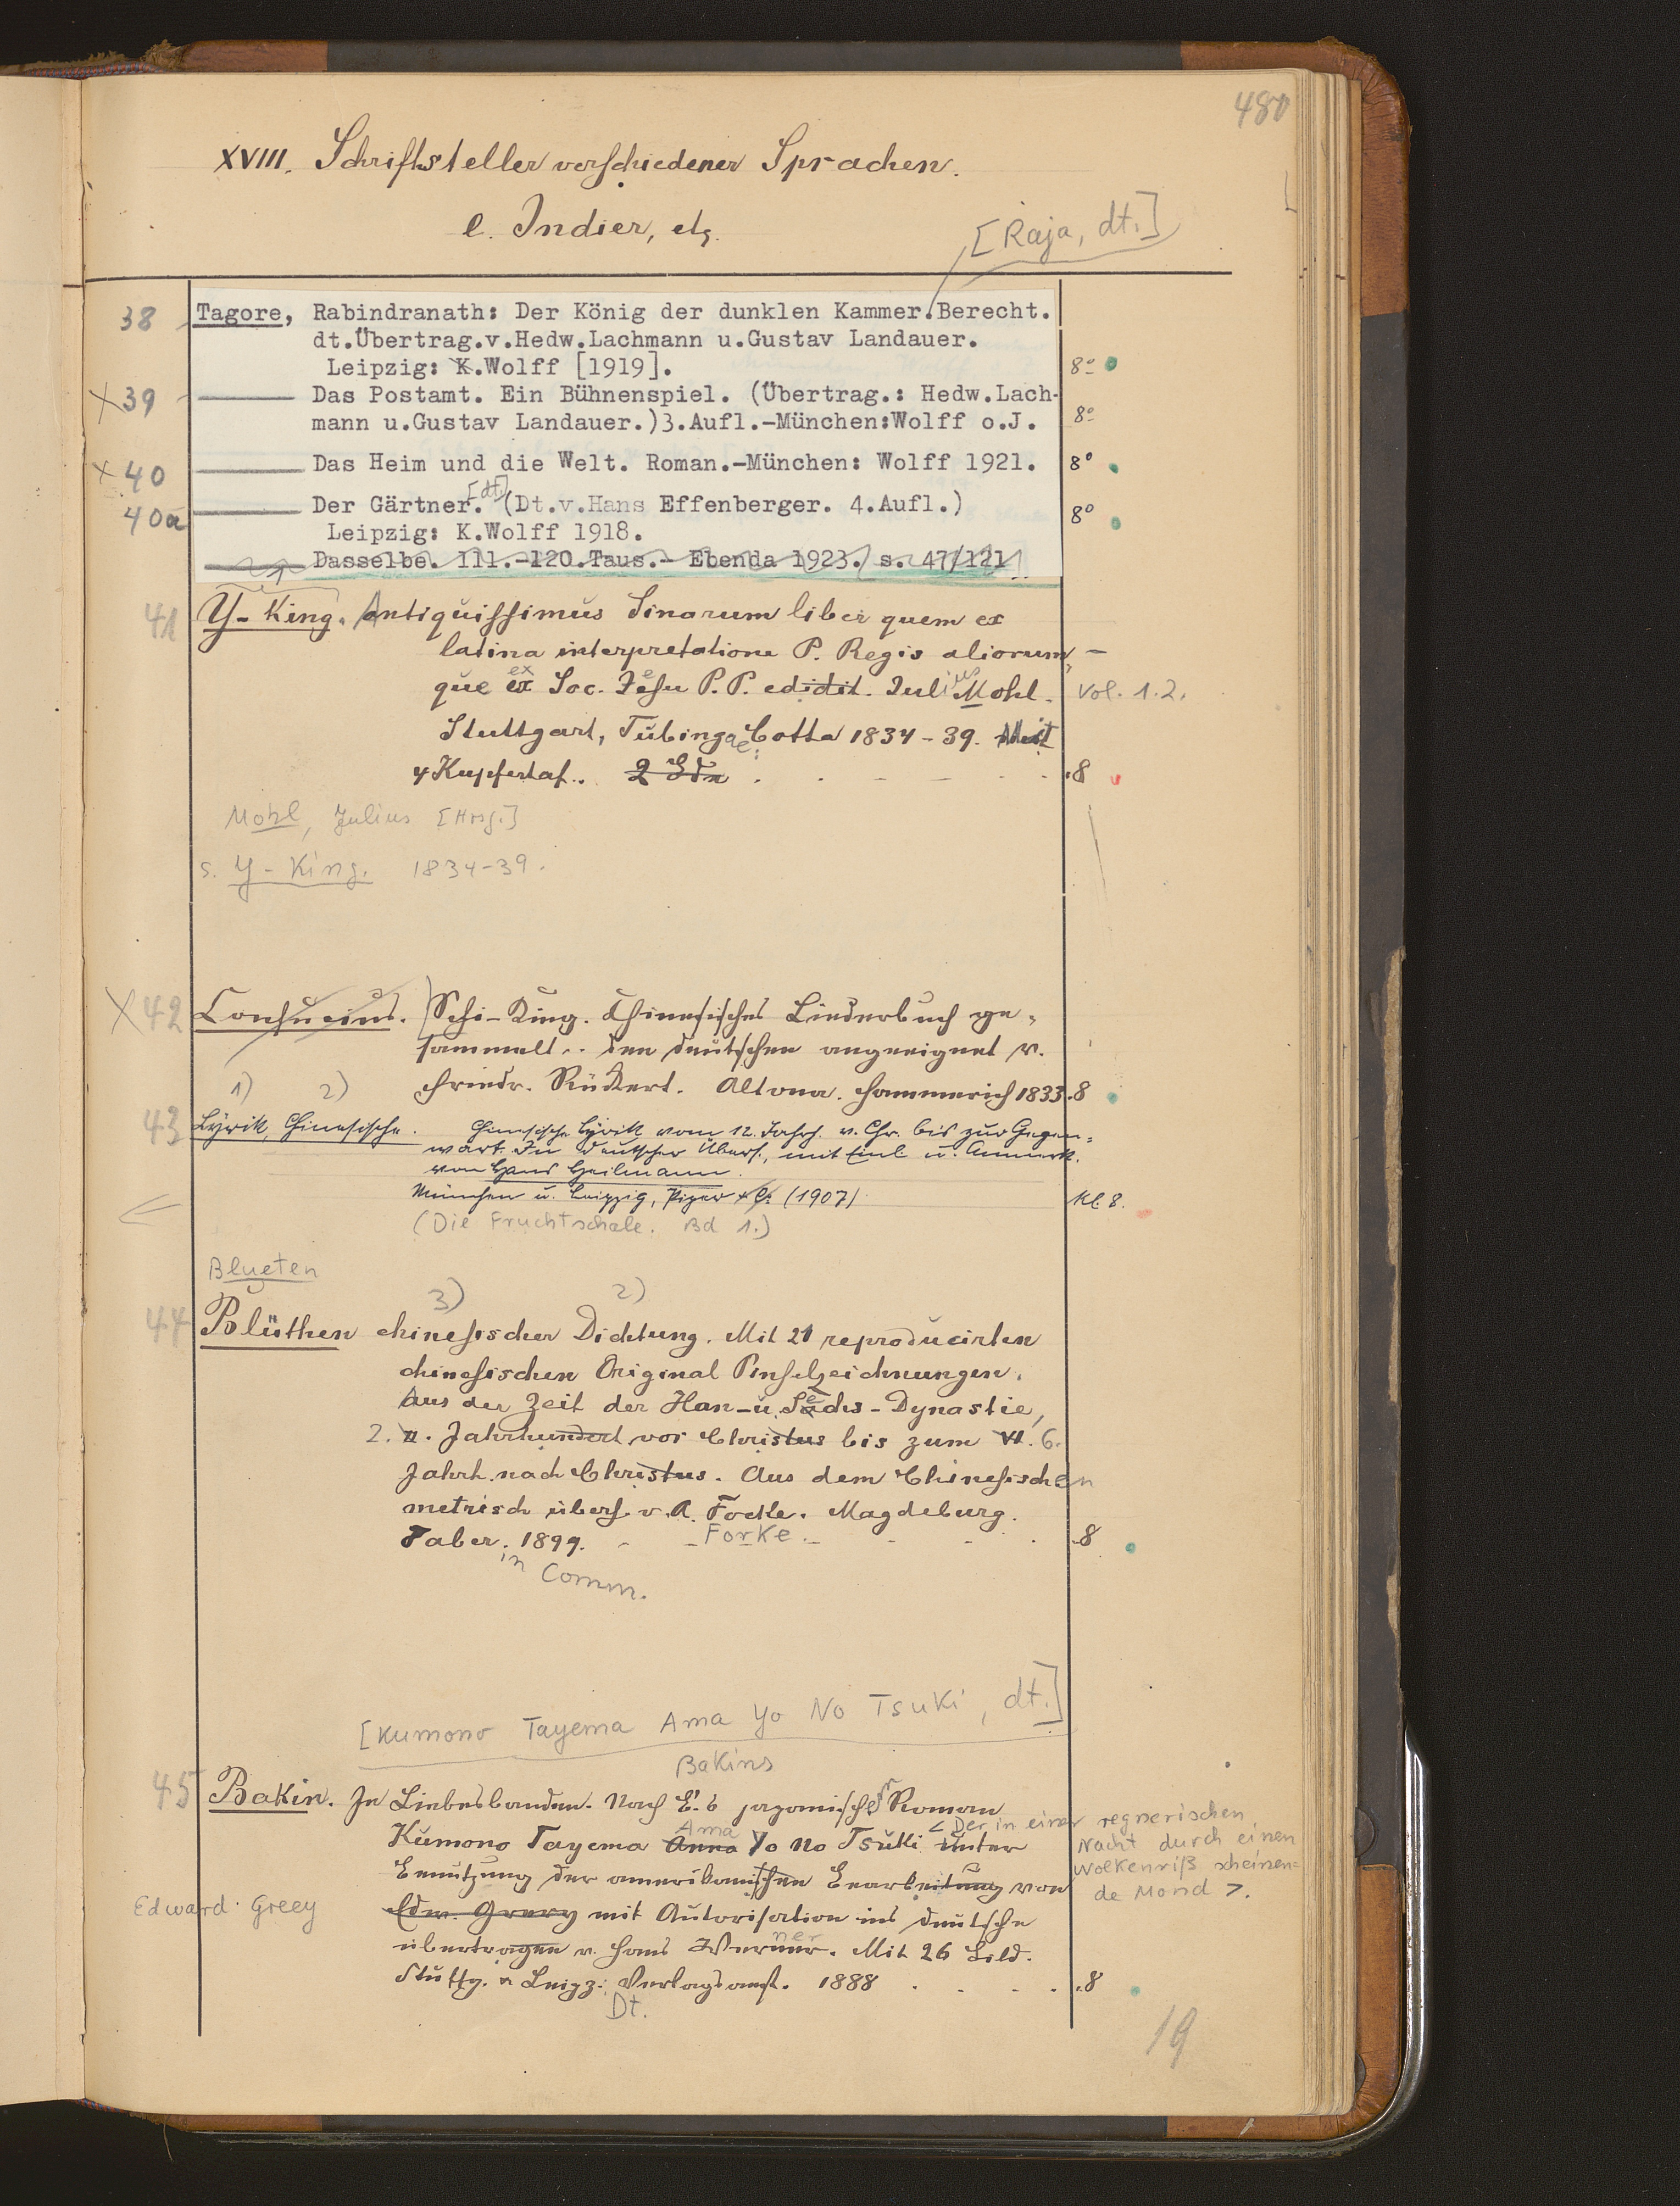 480
XVIII. Schriftsteller verschiedener Sprachen.
e. Indier, etz.
[Raja, dt.]
38 Tagore, Rabindranath: Der König der dunklen Kammer. Berecht.
dt.Übertrag.v.Hedw.Lachmann u.Gustav Landauer.
Leipzig: K.Wolff [1919]. 8º
×39 Das Postamt. Ein Bühnenspiel. (Übertrag.: Hedw.Lach-
mann u.Gustav Landauer.)3.Aufl.-München:Wolff o.J. 8º
×40 Das Heim und die Welt. Roman.-München: Wolff 1921. 8º
40a Der Gärtner. [dt.] (Dt.v.Hans Effenberger. 4.Aufl.) 8º
Leipzig: K.Wolff 1918.
Dasselbe. 111.-120.Taus.- Ebenda 1923. s. 47/121
41 Y-King. Antiquissimus Sinarum liber quem ex
latina interpretatione P. Regis aliorum
que ex Soc. Jesu P.P. edidit. Julius Mohl. Vol. 1.2.
Stuttgart, Tübingae: Cotta 1834-39. Mit
4 Kupfertaf.. 2 Bde . 8
Mohl, Julius [Hrsg.]
s. Y-King. 1834-39.
×42 Confucius. Schi-King. Chinesisches Liederbuch ge-
sammelt .. dem deutschen angeeignet v.
Friedr. Rückert. Altona. Hammerich 1833. 8
1) 2)
43 Lyrik, Chinesische. Chinesische Lyrik vom 12. Jahrh. v. Chr. bis zur Gegen-
wart. In deutscher Übers., mit Einl. u. Anmerk.
von Hans Heilmann.
München u. Leipzig, Piper & Co. (1907) Kl. 8.
(Die Fruchtschale. Bd 1.)
Blueten
3) 2)
44 Blüthen chinesischer Dichtung. Mit 21 reproducirten
chinesischen Original Pinselzeichnungen.
Aus der Zeit der Han- u. Sechs-Dynastie,
2. II. Jahrhundert vor Christus bis zum VI. 6.
Jahrh. nach Christus. Aus dem Chinesischen
metrisch übers. v. A. Focke. Magdeburg.
Faber. 1899. Forke. 8
in Comm.
[Kumono Tayema Ama Yo No Tsuki, dt.]
Bakins
45 Bakin. In Liebesbanden. Nach B.'s japanischer Roman
<Der in einer regnerischen
Kumono Tayema Anna Ama Yo No Tsuki Unter Nacht durch einen
Benutzung der amerikanischen Bearbeitung von Wolkenriß scheinen=
de Mond>.
Edward Greey Edw. Greey mit Autorisation ins deutsche
übertragen v. Hans Werner. Mit 26 Bild.
Stuttg. u Leipz.: Verlagsanst. 1888 8
Dt.
19